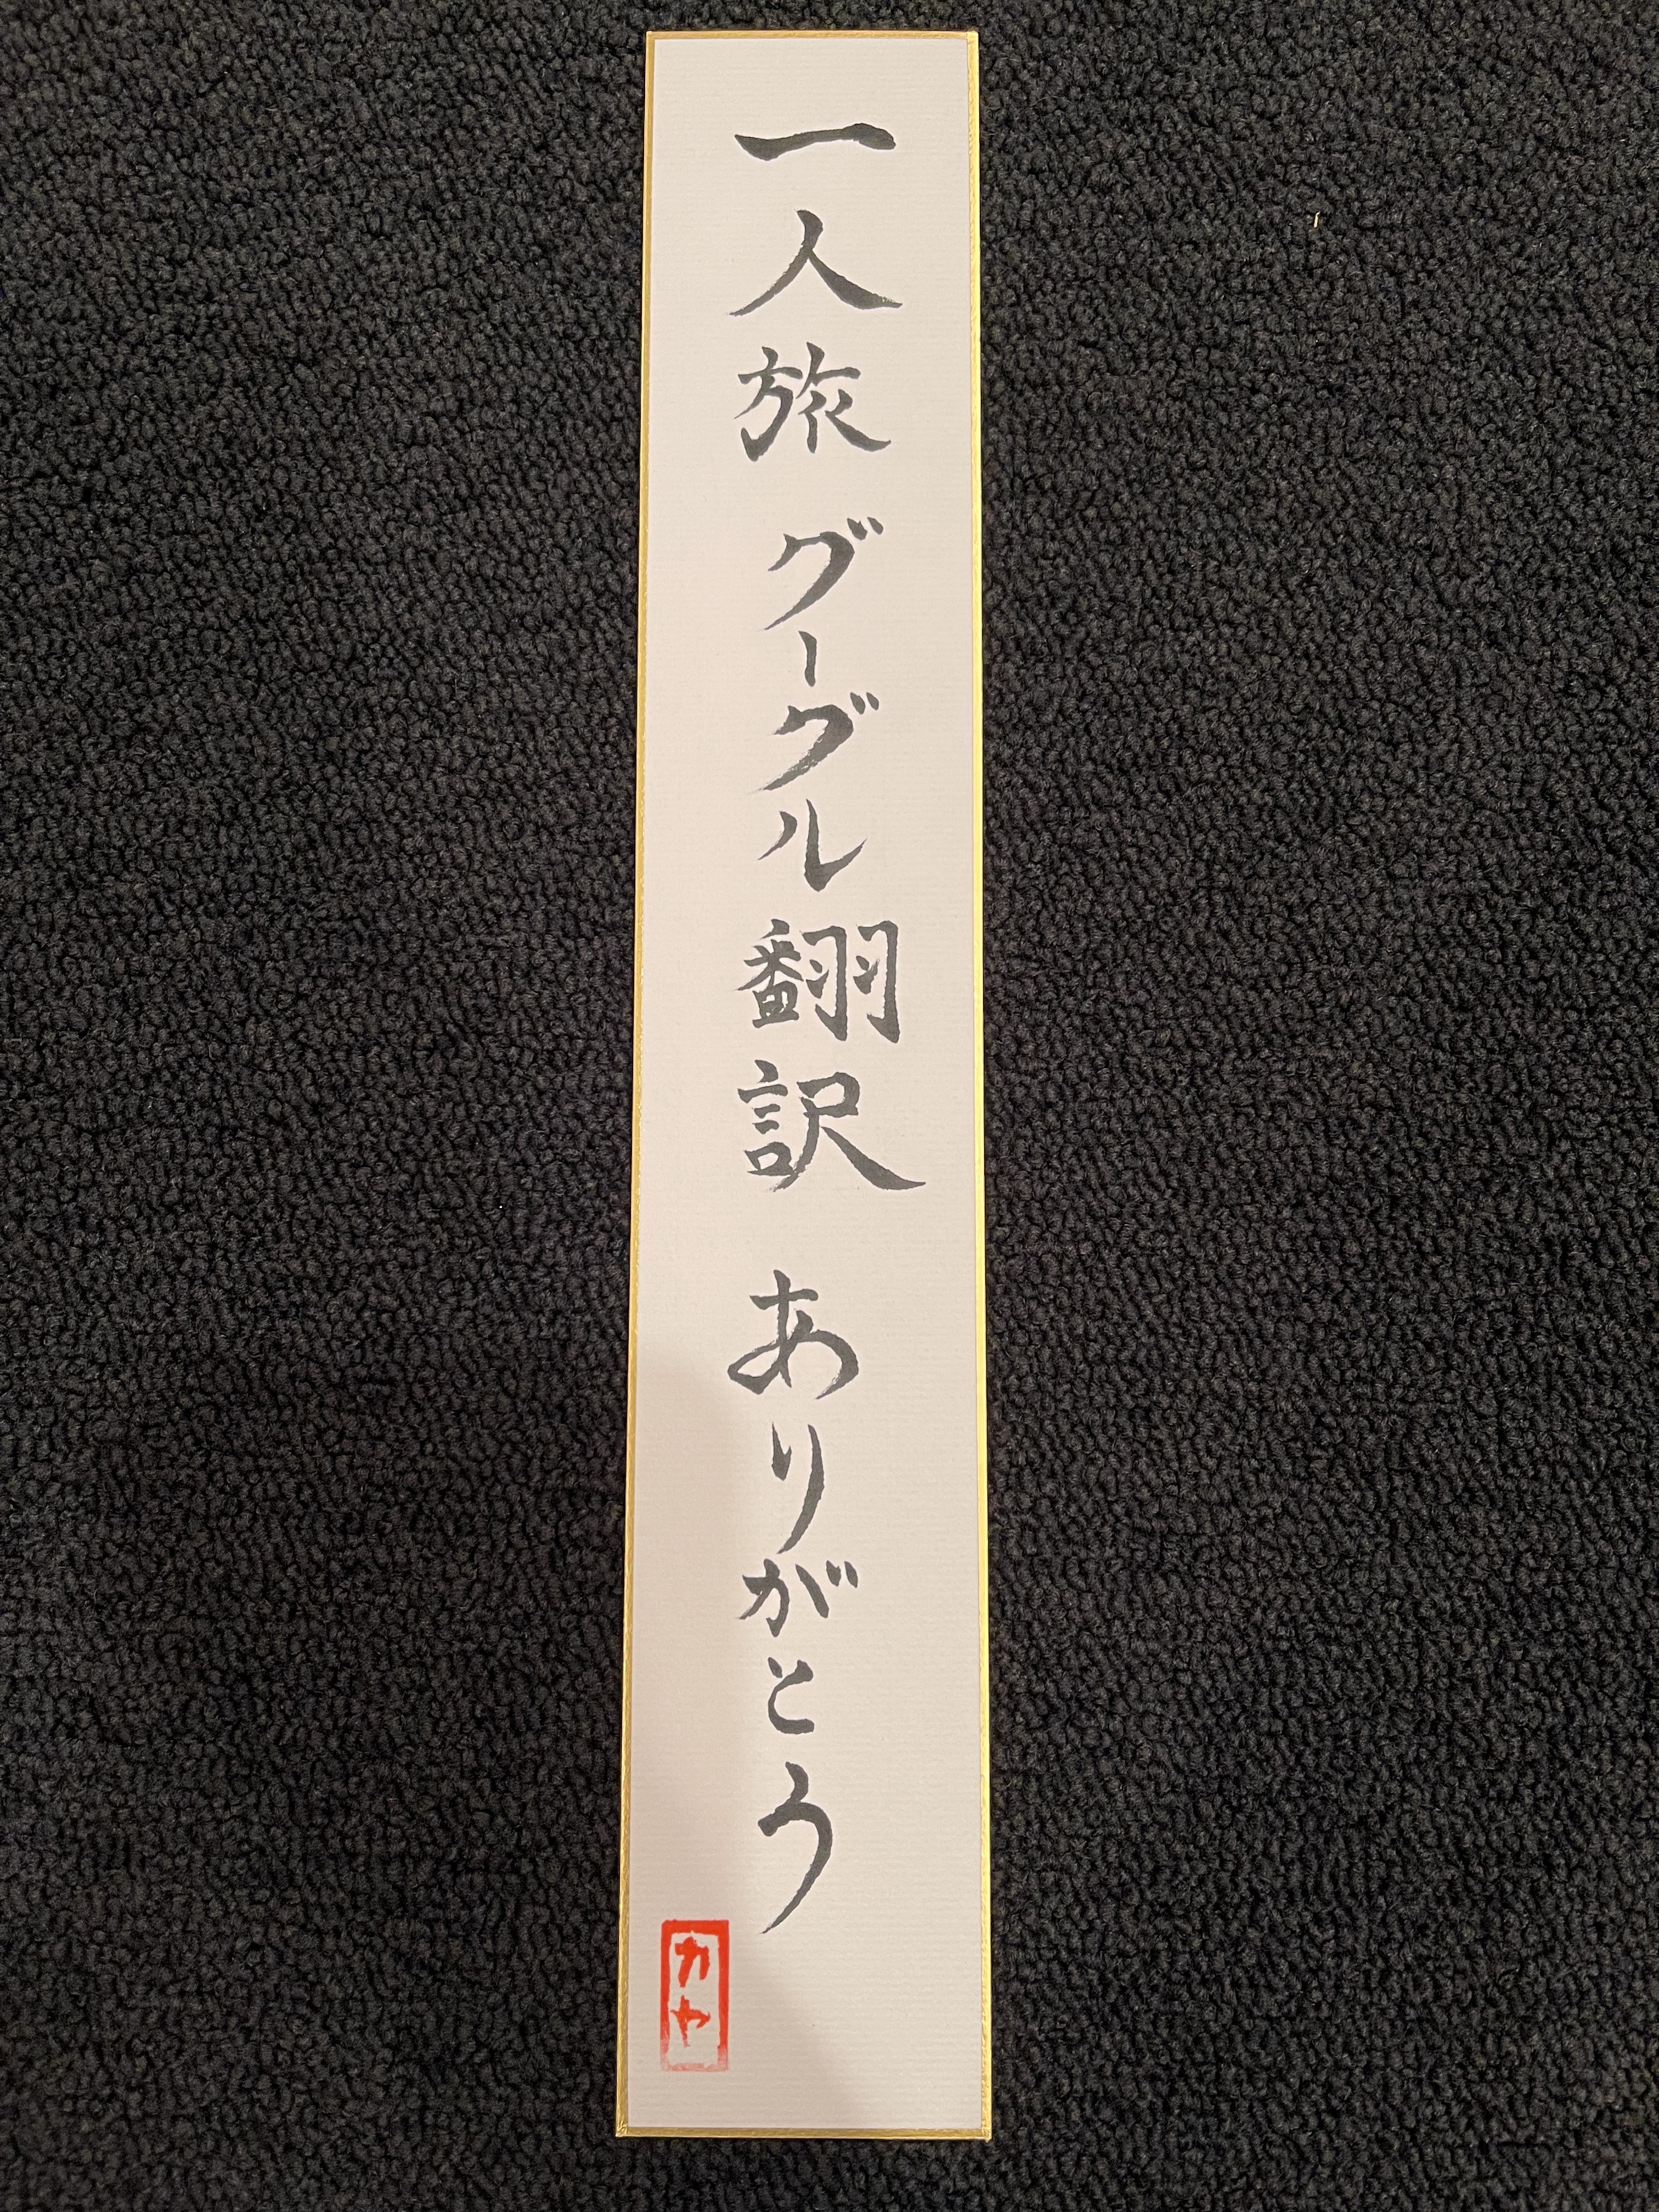 一人旅 グーグル翻訳 ありがとう
カヤ